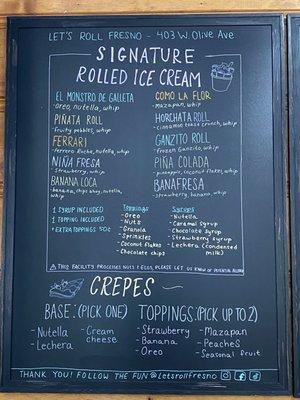 LET'S ROLL FRESNO - 403 W. Olive Ave
SIGNATURE
ROLLED ICE CREAM
EL MONSTRO DE GALLETA
Oreo, nutella, whip
PIÑATA ROLL
Fruity pebbles, whip
FERRARI
Ferrero Roche, nutella, whip
NIÑA FRESA
Strawberry, whip
BANANA LOCA
banana, chips ahoy, nutella,
whip
COMO LA FLOR
Mazapan, whip
HORCHATA ROLL
Cinnamon toast crunch, whip
GANZITO ROLL
Frozen Ganzito, whip
PIÑA COLADA
pineapple, coconut flakes, whip
BANAFRESA
strawberry, banana, whip
1 SYRUP INCLUDED
1 TOPPING INCLUDED
* EXTRA TOPPINGS 50¢
Toppings
- Oreo
- Nuts
- Granola
- Sprinkles
- Coconut flakes
- Chocolate chips
Syrups
- Nutella
- Caramel syrup
- Chocolate syrup
- Strawberry syrup
- Lechera (condensed
milk)
THIS FACILITY PROCESSES NUTS & EGGS, PLEASE LET US KNOW OF POTENTIAL
CREPES
BASE: (PICK ONE)
- Nutella
- Lechera
- Cream
cheese
TOPPINGS: (PICK UP TO 2)
- Strawberry
- Banana
- Oreo
- Mazapan
- Peaches
- Seasonal fruit
THANK YOU! FOLLOW THE FUN @letsrollfresno